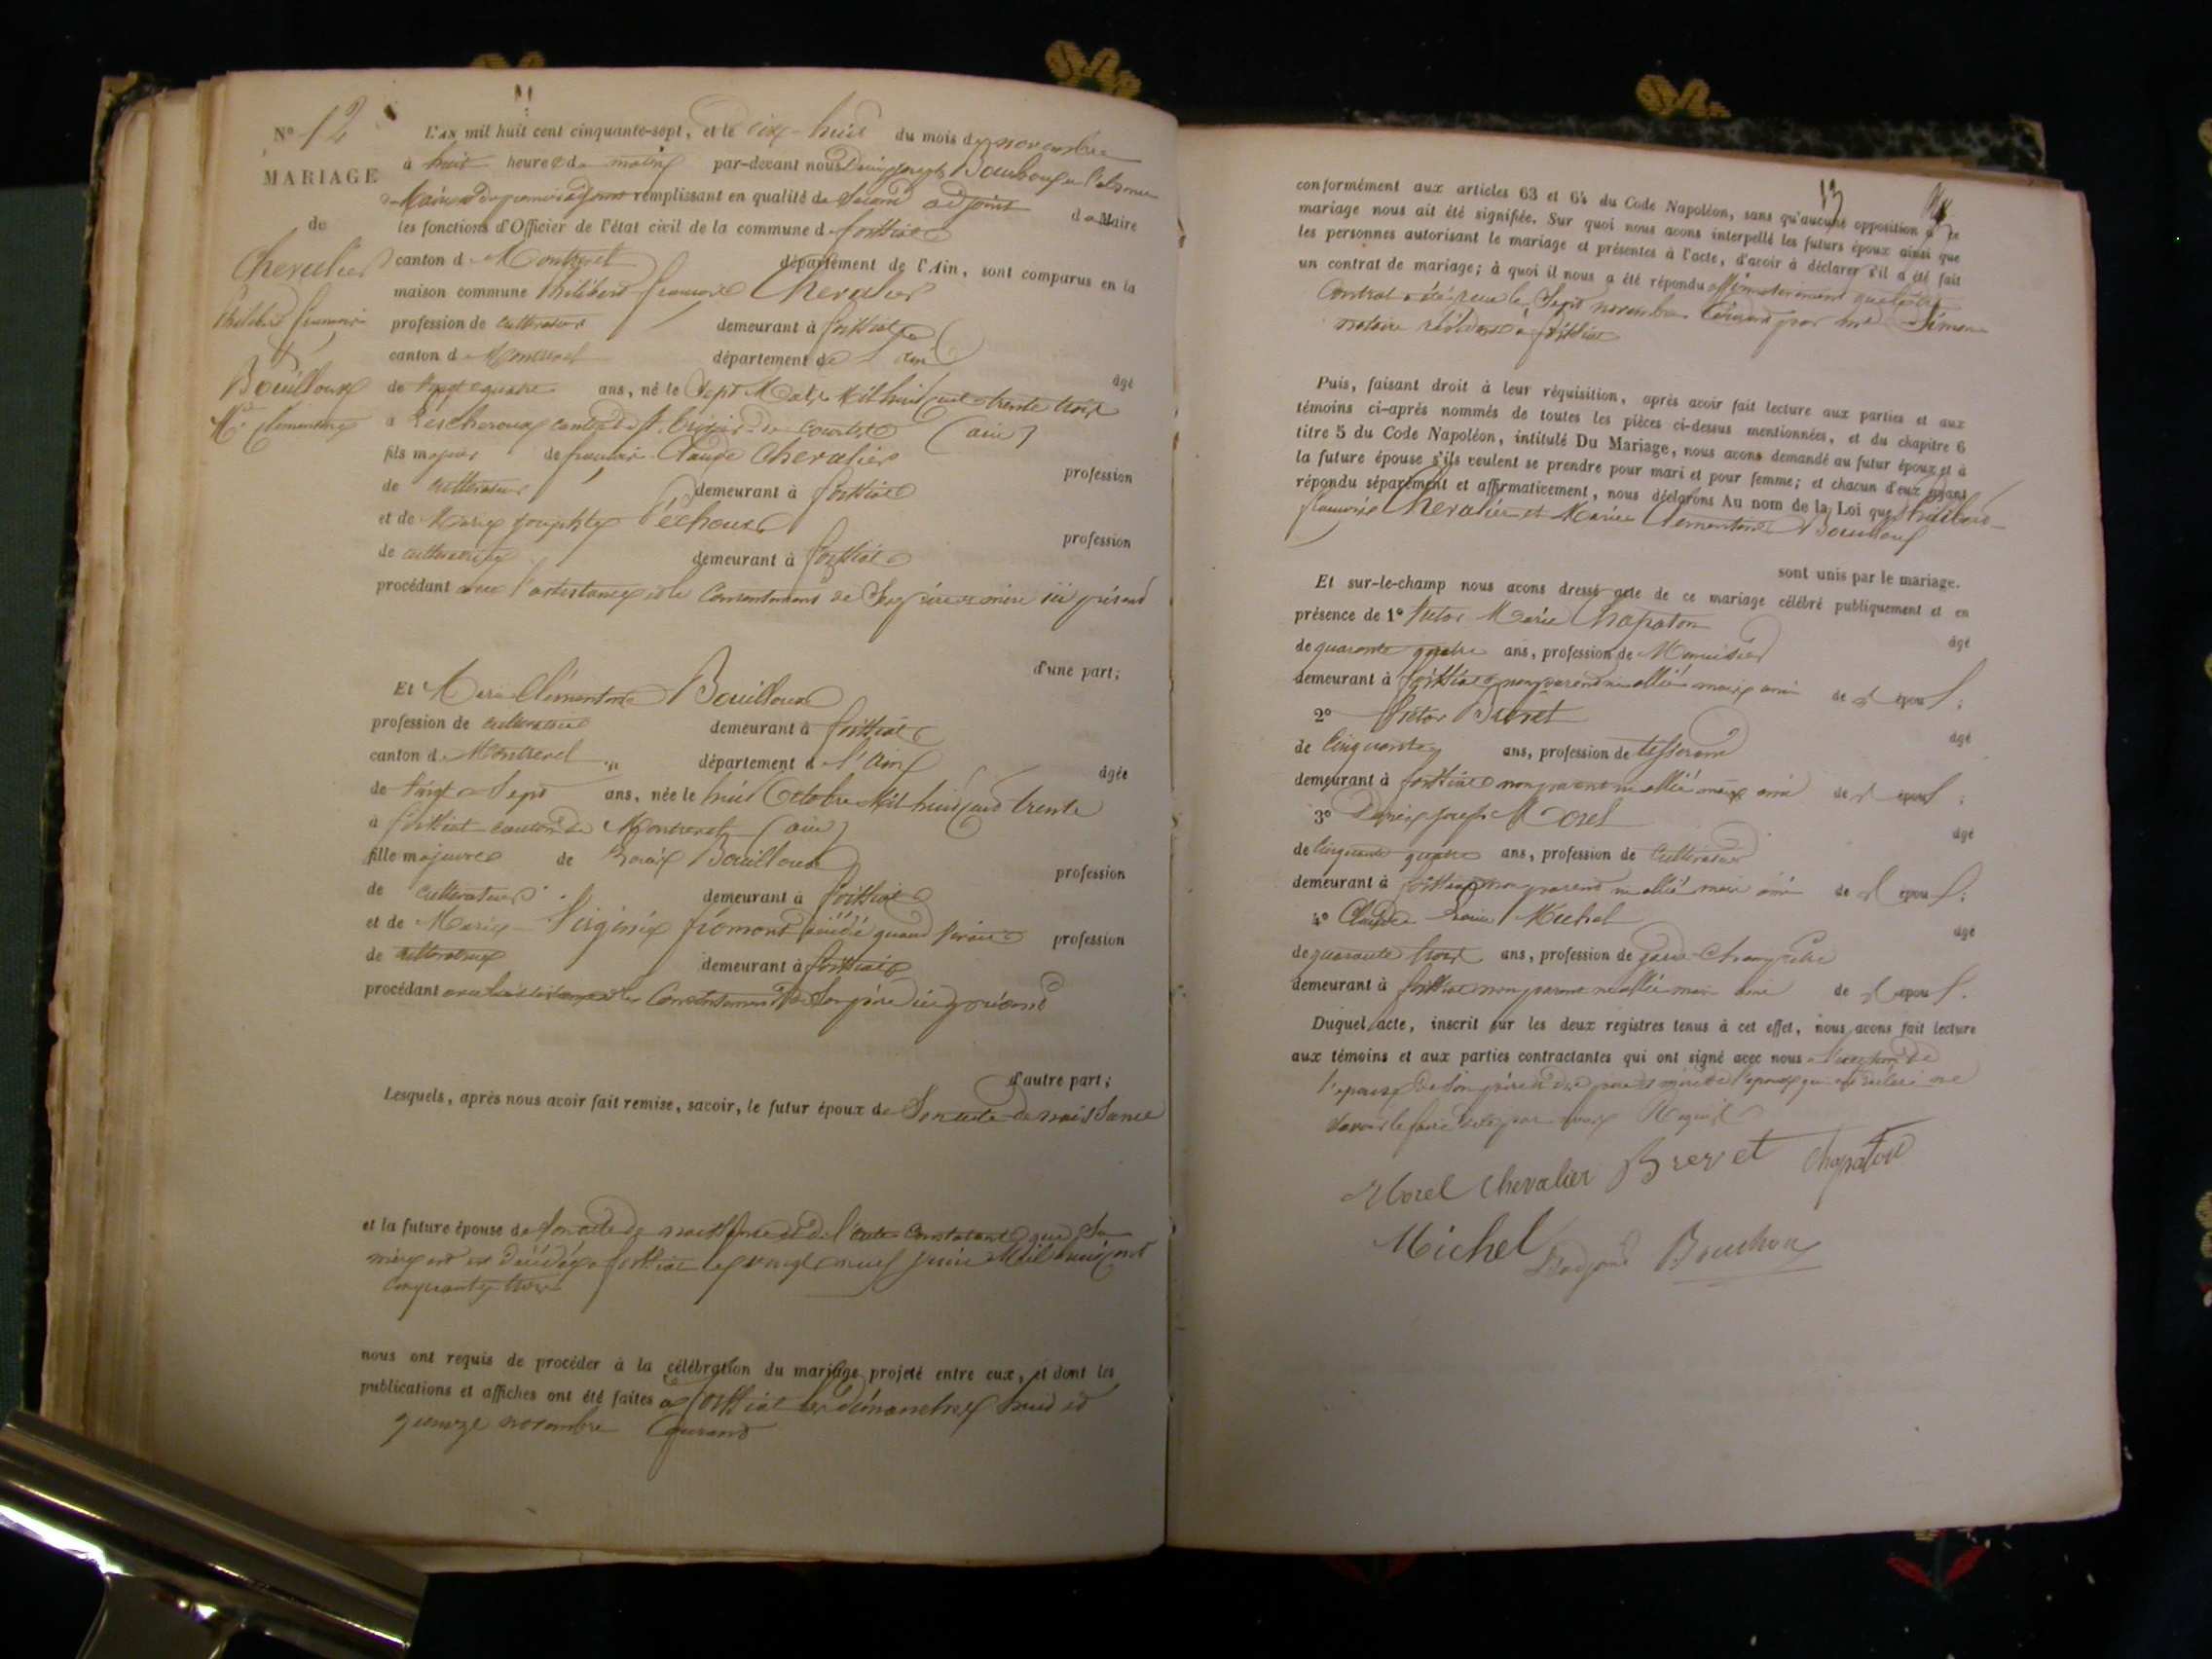 N° 12
MARIAGE
de
Chevalier
Philibert françois
et
Bouilloux
Mie Clémentine
L'AN mil huit cent cinquante-sept, et le dix-huit du mois de novembre
à huit heures du matin par-devant nous Denis joseph Bouchoux en l'absence
du Maire et du premier adjoint remplissant en qualité de Second adjoint du Maire
les fonctions d'Officier de l'état civil de la commune d foissiat
canton d Montrevel département de l'Ain, sont comparus en la
maison commune Philibert françois Chevalier
profession de cultivateur demeurant à foissiat
canton d Montrevel département de l'ain
âgé
de vingt quatre ans, né le Sept Mars Mil huit cent trente trois
à Lescheroux canton de St. trivier de courtes (ain)
fils majeur de françois Claude Chevalier
profession
de cultivateur demeurant à foissiat
et de Marie josephte Péchoux
profession
de cultivatrice demeurant à foissiat
procédant avec l'assistance et le Consentement de Ses père et mère ici présents
d'une part;
Et Marie Clémentine Bouilloux
profession de cultivatrice demeurant à foissiat
canton d Montrevel département d l'Ain
âgée
de Vingt Sept ans, née le huit Octobre Mil huit cent trente
à foissiat canton de Montrevel (ain)
fille majeure de Louis Bouilloux
profession
de cultivateur demeurant à foissiat
et de Marie Virginie fromont décédée quand vivait profession
de cultivatrice demeurant à foissiat
procédant avec l'assistance et le Consentement de Son père ici présent
d'autre part;
Lesquels, après nous avoir fait remise, savoir, le futur époux de Son acte de naissance
et la future épouse de Son acte de naissance et de l'acte Constatant que Sa
mère est décédée à foissiat le vingt neuf juin Mil huit cent
cinquante trois
nous ont requis de procéder à la célébration du mariage projeté entre eux, et dont les
publications et affiches ont été faites à foissiat les dimanches huit et
quinze novembre Courant
13
conformément aux articles 63 et 64 du Code Napoléon, sans qu'aucune opposition à ce
mariage nous ait été signifiée. Sur quoi nous avons interpellé les futurs époux ainsi que
les personnes autorisant le mariage et présentes à l'acte, d'avoir à déclarer s'il a été fait
un contrat de mariage; à quoi il nous a été répondu affirmativement que le dit
Contrat a été reçu le Sept novembre Courant par me
notaire résidant à foissiat
Puis, faisant droit à leur réquisition, après avoir fait lecture aux parties et aux
témoins ci-après nommés de toutes les pièces ci-dessus mentionnées, et du chapitre 6
titre 5 du Code Napoléon, intitulé Du Mariage, nous avons demandé au futur époux et à
la future épouse s'ils veulent se prendre pour mari et pour femme; et chacun d'eux ayant
répondu séparément et affirmativement, nous déclarons Au nom de la Loi que Philibert
françois Chevalier et Marie Clémentine Bouilloux
sont unis par le mariage.
Et sur-le-champ nous avons dressé acte de ce mariage célébré publiquement et en
présence de 1° Victor Marie Chapaton
âgé
de quarante quatre ans, profession de Menuisier
demeurant à foissiat non parent ni allié mais ami de s époux;
2° Victor Brevet
âgé
de Cinquante ans, profession de tisserand
demeurant à foissiat non parent ni allié mais ami de s époux;
3° Denis joseph Morel
âgé
de Cinquante quatre ans, profession de Cultivateur
demeurant à foissiat non parent ni allié mais ami de s époux;
4° Claude Louis Michel
âgé
de quarante trois ans, profession de garde-Champêtre
demeurant à foissiat non parent ni allié mais ami de s époux.
Duquel acte, inscrit sur les deux registres tenus à cet effet, nous avons fait lecture
aux témoins et aux parties contractantes qui ont signé avec nous à l'exception de
l'épouse de Son père et des père et mère de l'époux qui ont déclaré ne
savoir le faire de ce par nous Requis
Morel Chevalier Brevet Chapaton
Michel
Bouchoux